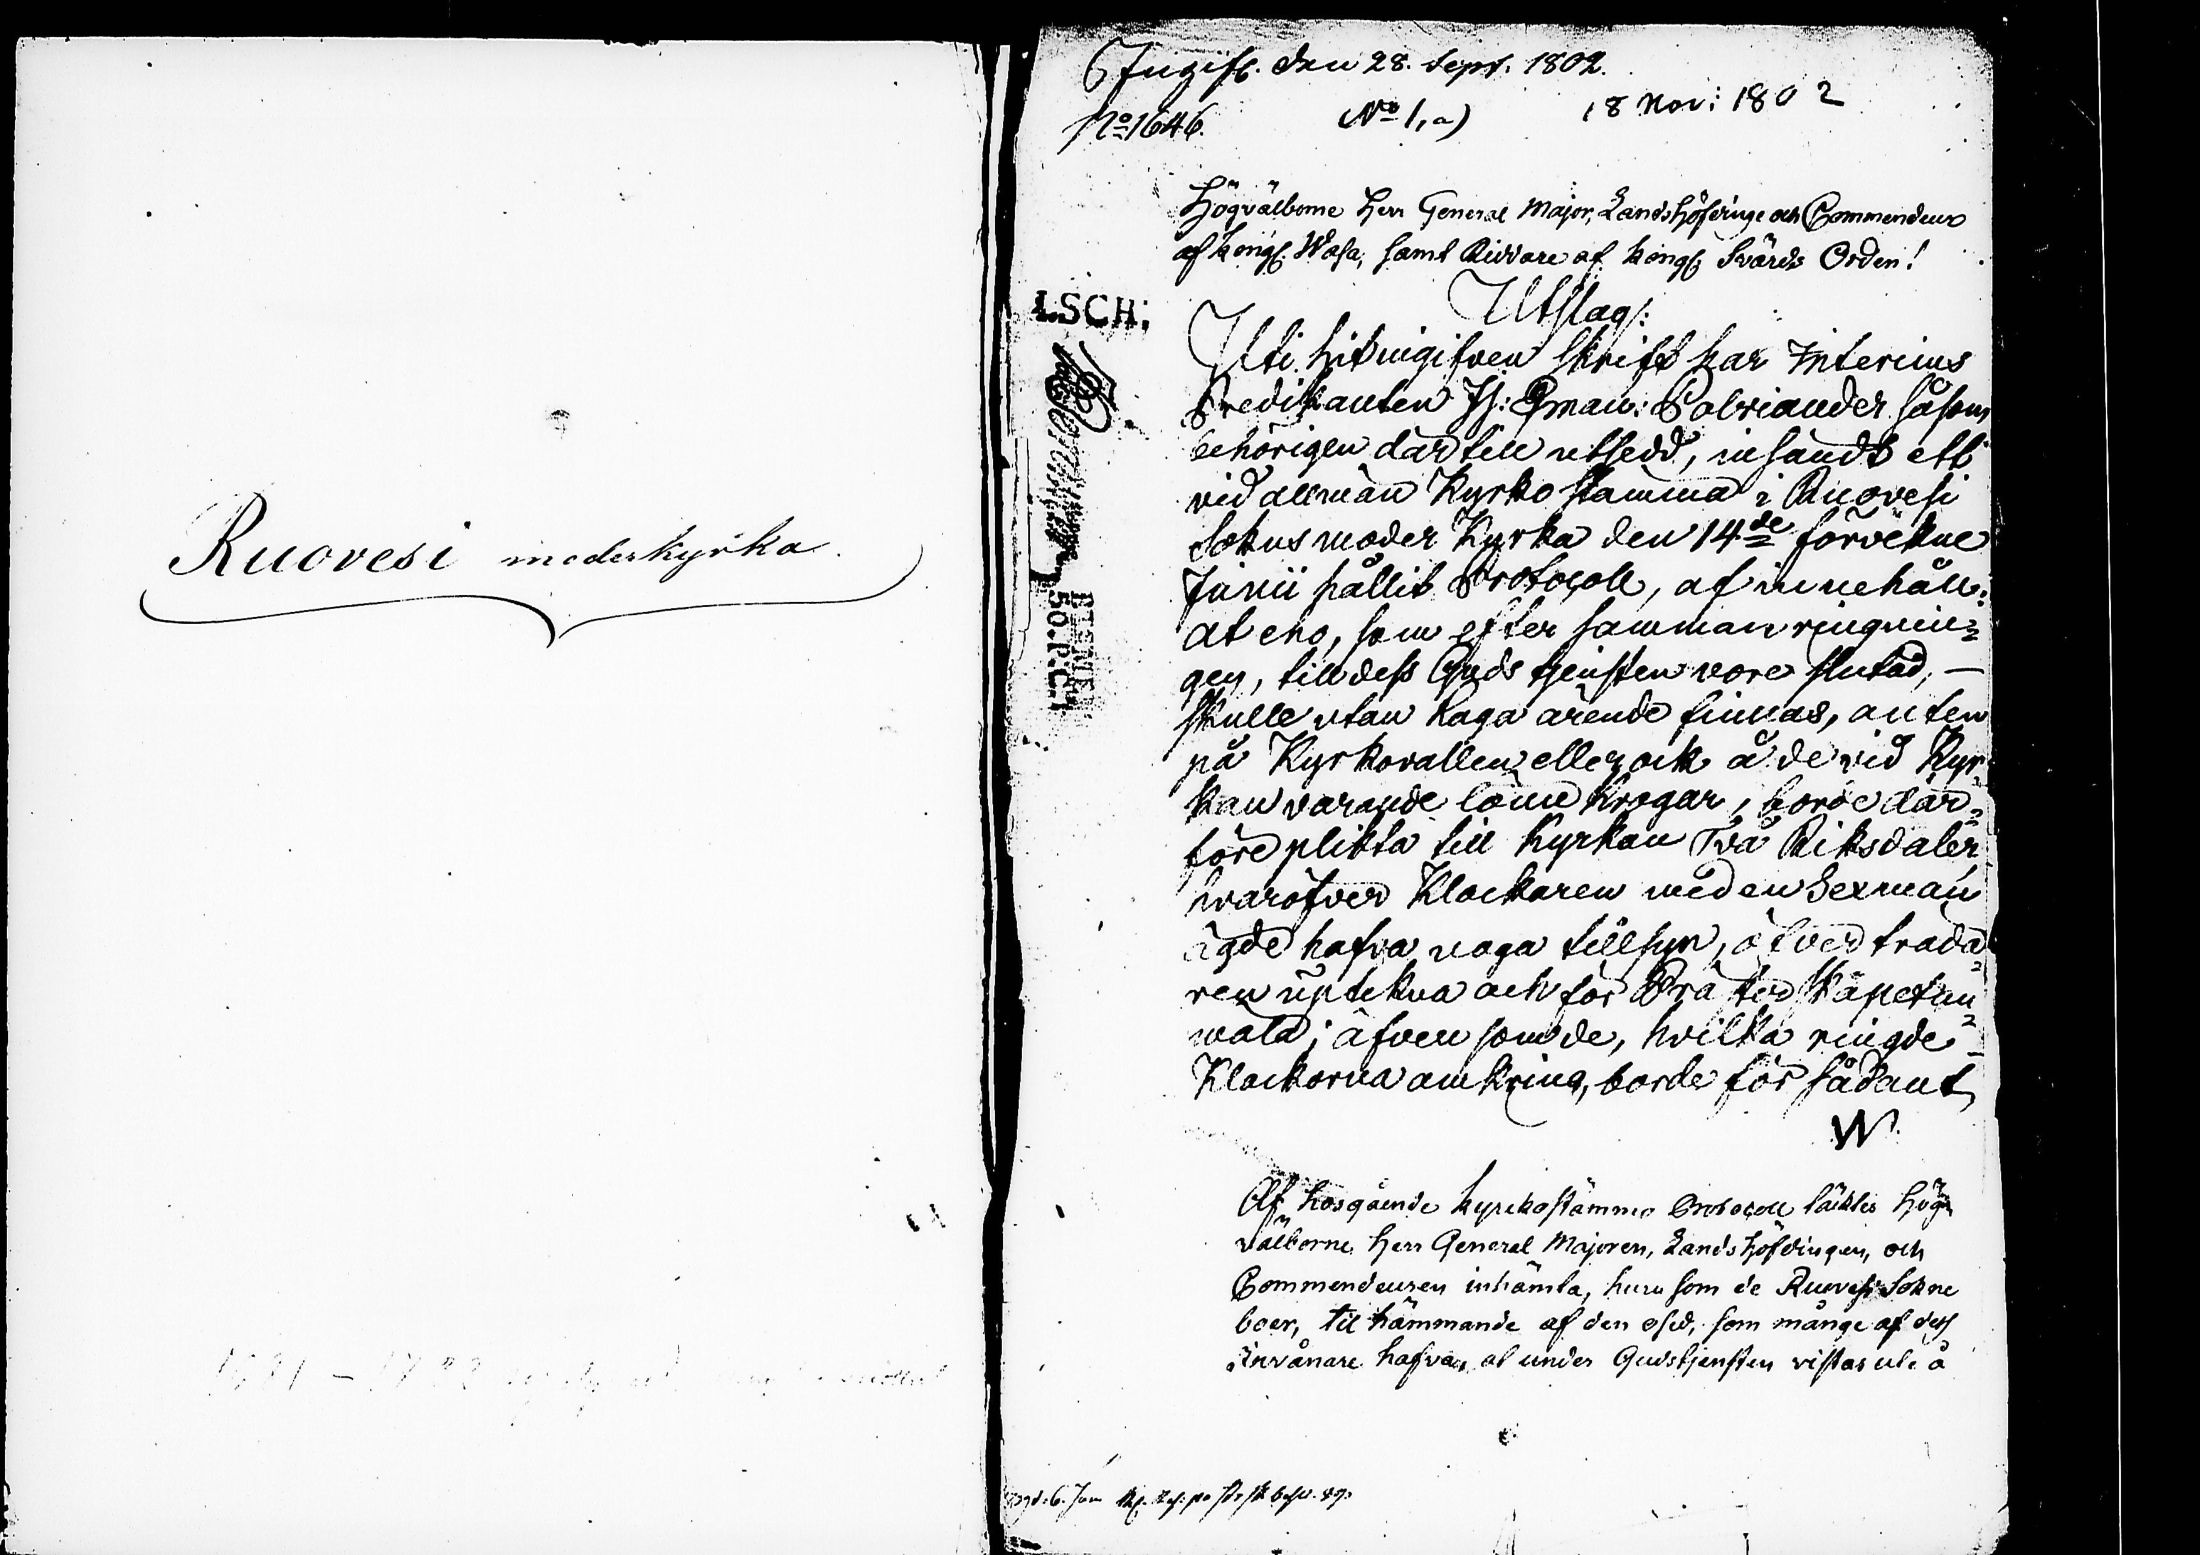 Ruovesi moderkyrka.
Ingifv. den 28. Sept. 1802.
No 1646. No 1, a) 18 Nov: 1802
Högvälborne Herr General Major, Landshöfdinge och Commendeur
af Kongl. Wasa, samt Riddare af Kongl. Svärds Orden!
Utslag:
Uti hitingifven skrift har Interims
Predikanten H: Eman: Polviander såsom
behörigen därtill utsedd, insändt ett
vid allmän Kyrkostämma i Ruovesi
Sokns moder Kyrka den 14de förvekne
Junii hållit Protocoll, af innehåll:
at eho, som efter sammanringnin=
gen, till dess Gudstjensten vore slutad, —
skulle utan laga ärende finnas, anten
på Kyrkovallen eller ock å de vid Kyr=
kan varande lönne krogar, borde där=
före plikta till Kyrkan Två Riksdaler
hvaröfver Klockaren med en Sexman
ägde hafva noga tillsyn, öfverträda=
ren uptekna och för Prästerskapet an=
mäla; äfven som de, hvilka ringde
Klockorna omkring, borde för sådant
Af hosgående Kyrckostämmo Protocoll täcktes Hög
välborne Herr General Majoren, Landshöfdingen, och
Commendeuren inhämta, huru som de Ruovesi Sokne
boer, til hämmande af den osed, som månge af dess
invånare hafva, at under Gudstjensten vistas ute å
LSCH;
50.P.C.